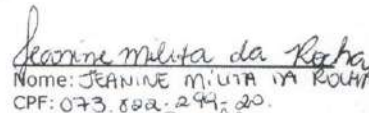 Jeanine Milita da Rocha
Nome: JEANINE MILITA DA ROCHA
CPF: 073.822.299-20.